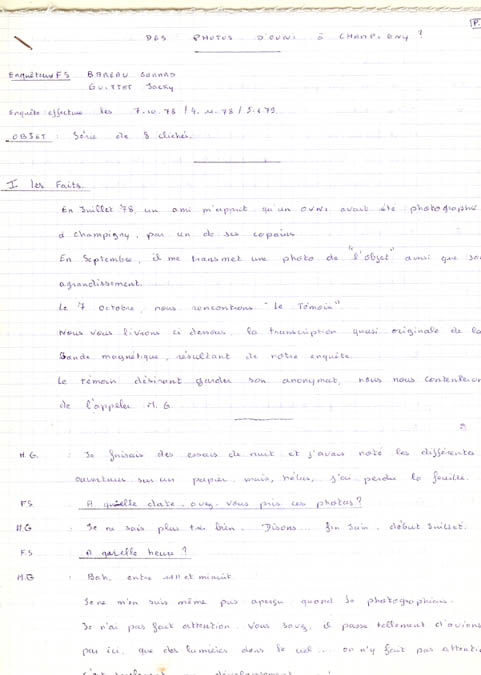 P.
DES PHOTOS D'OVNI à CHAMPIGNY ?
Enquêteurs FS BAREAU GERARD
GUITTET Jacky
Enquête effectuée les 7.10.78 / 4.11.78 / 2.1.79
OBJET : Série de 8 clichés.
I les Faits.
En Juillet 78, un ami m'apprit qu'un OVNI avait été photographié
à Champigny, par un de ses copains
En Septembre, il me transmet une photo de "l'objet" ainsi que son
agrandissement.
Le 7 octobre, nous rencontrions "Le Témoin".
Nous vous livrons ci dessous, la transcription quasi originale de la
Bande magnétique, résultant de notre enquête.
Le témoin désirant garder son anonymat, nous nous contenterons
de l'appeler M.G.
M.G. : Je faisais des essais de nuit et j'avais noté les différentes
ouvertures sur un papier, mais, hélas, j'ai perdu la feuille.
F.S A quelle date avez-vous pris ces photos ?
M.G : Je ne sais plus très bien. Disons... fin juin, début Juillet.
F.S A quelle heure ?
M.G : Bah, entre et minuit.
Je ne m'en suis même pas aperçu quand je photographiais.
Je n'ai pas fait attention. Vous savez, il passe tellement d'avions
par ici, que des lumières dans le ciel... on n'y fait pas attention
c'est seulement au développement